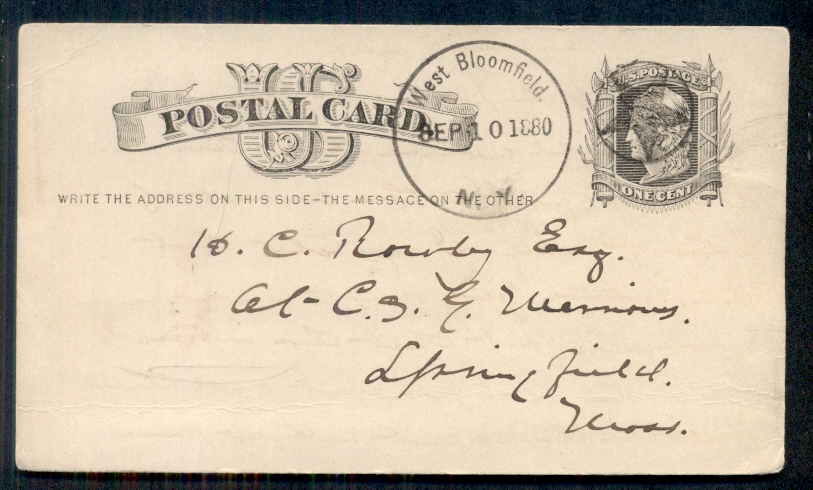 US
POSTAL CARD.
West Bloomfield.
SEP 10 1880
N.Y.
U.S. POSTAGE
ONE CENT
WRITE THE ADDRESS ON THIS SIDE-THE MESSAGE ON THE OTHER
H. C. Rowley Esq.
At C. & G. Merriams.
Springfield.
Mass.